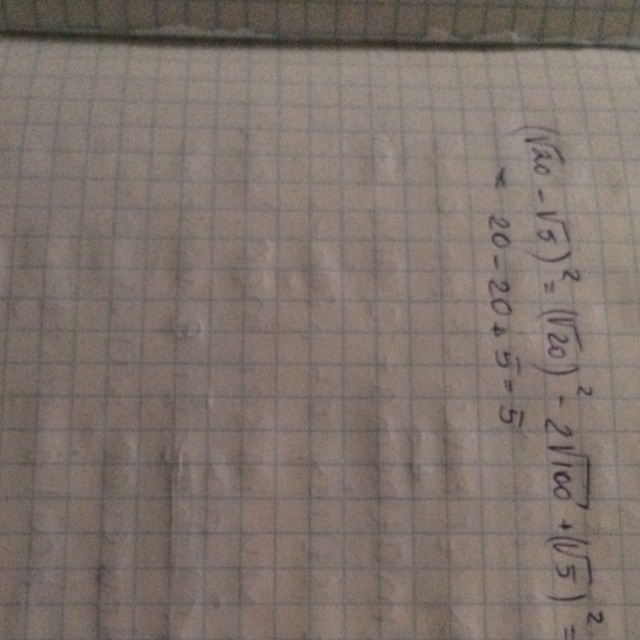 (√20 - √5)² = (√20)² - 2√100 + (√5)² =
= 20 - 20 + 5 = 5